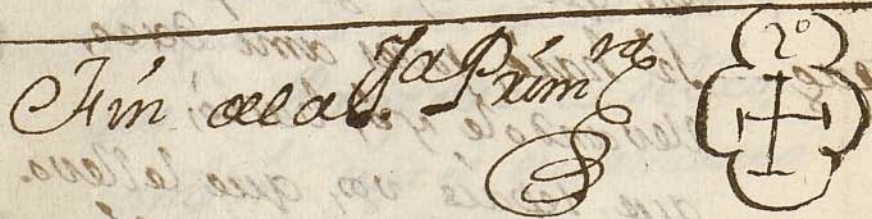 Fin de la Jª Primrª
2º